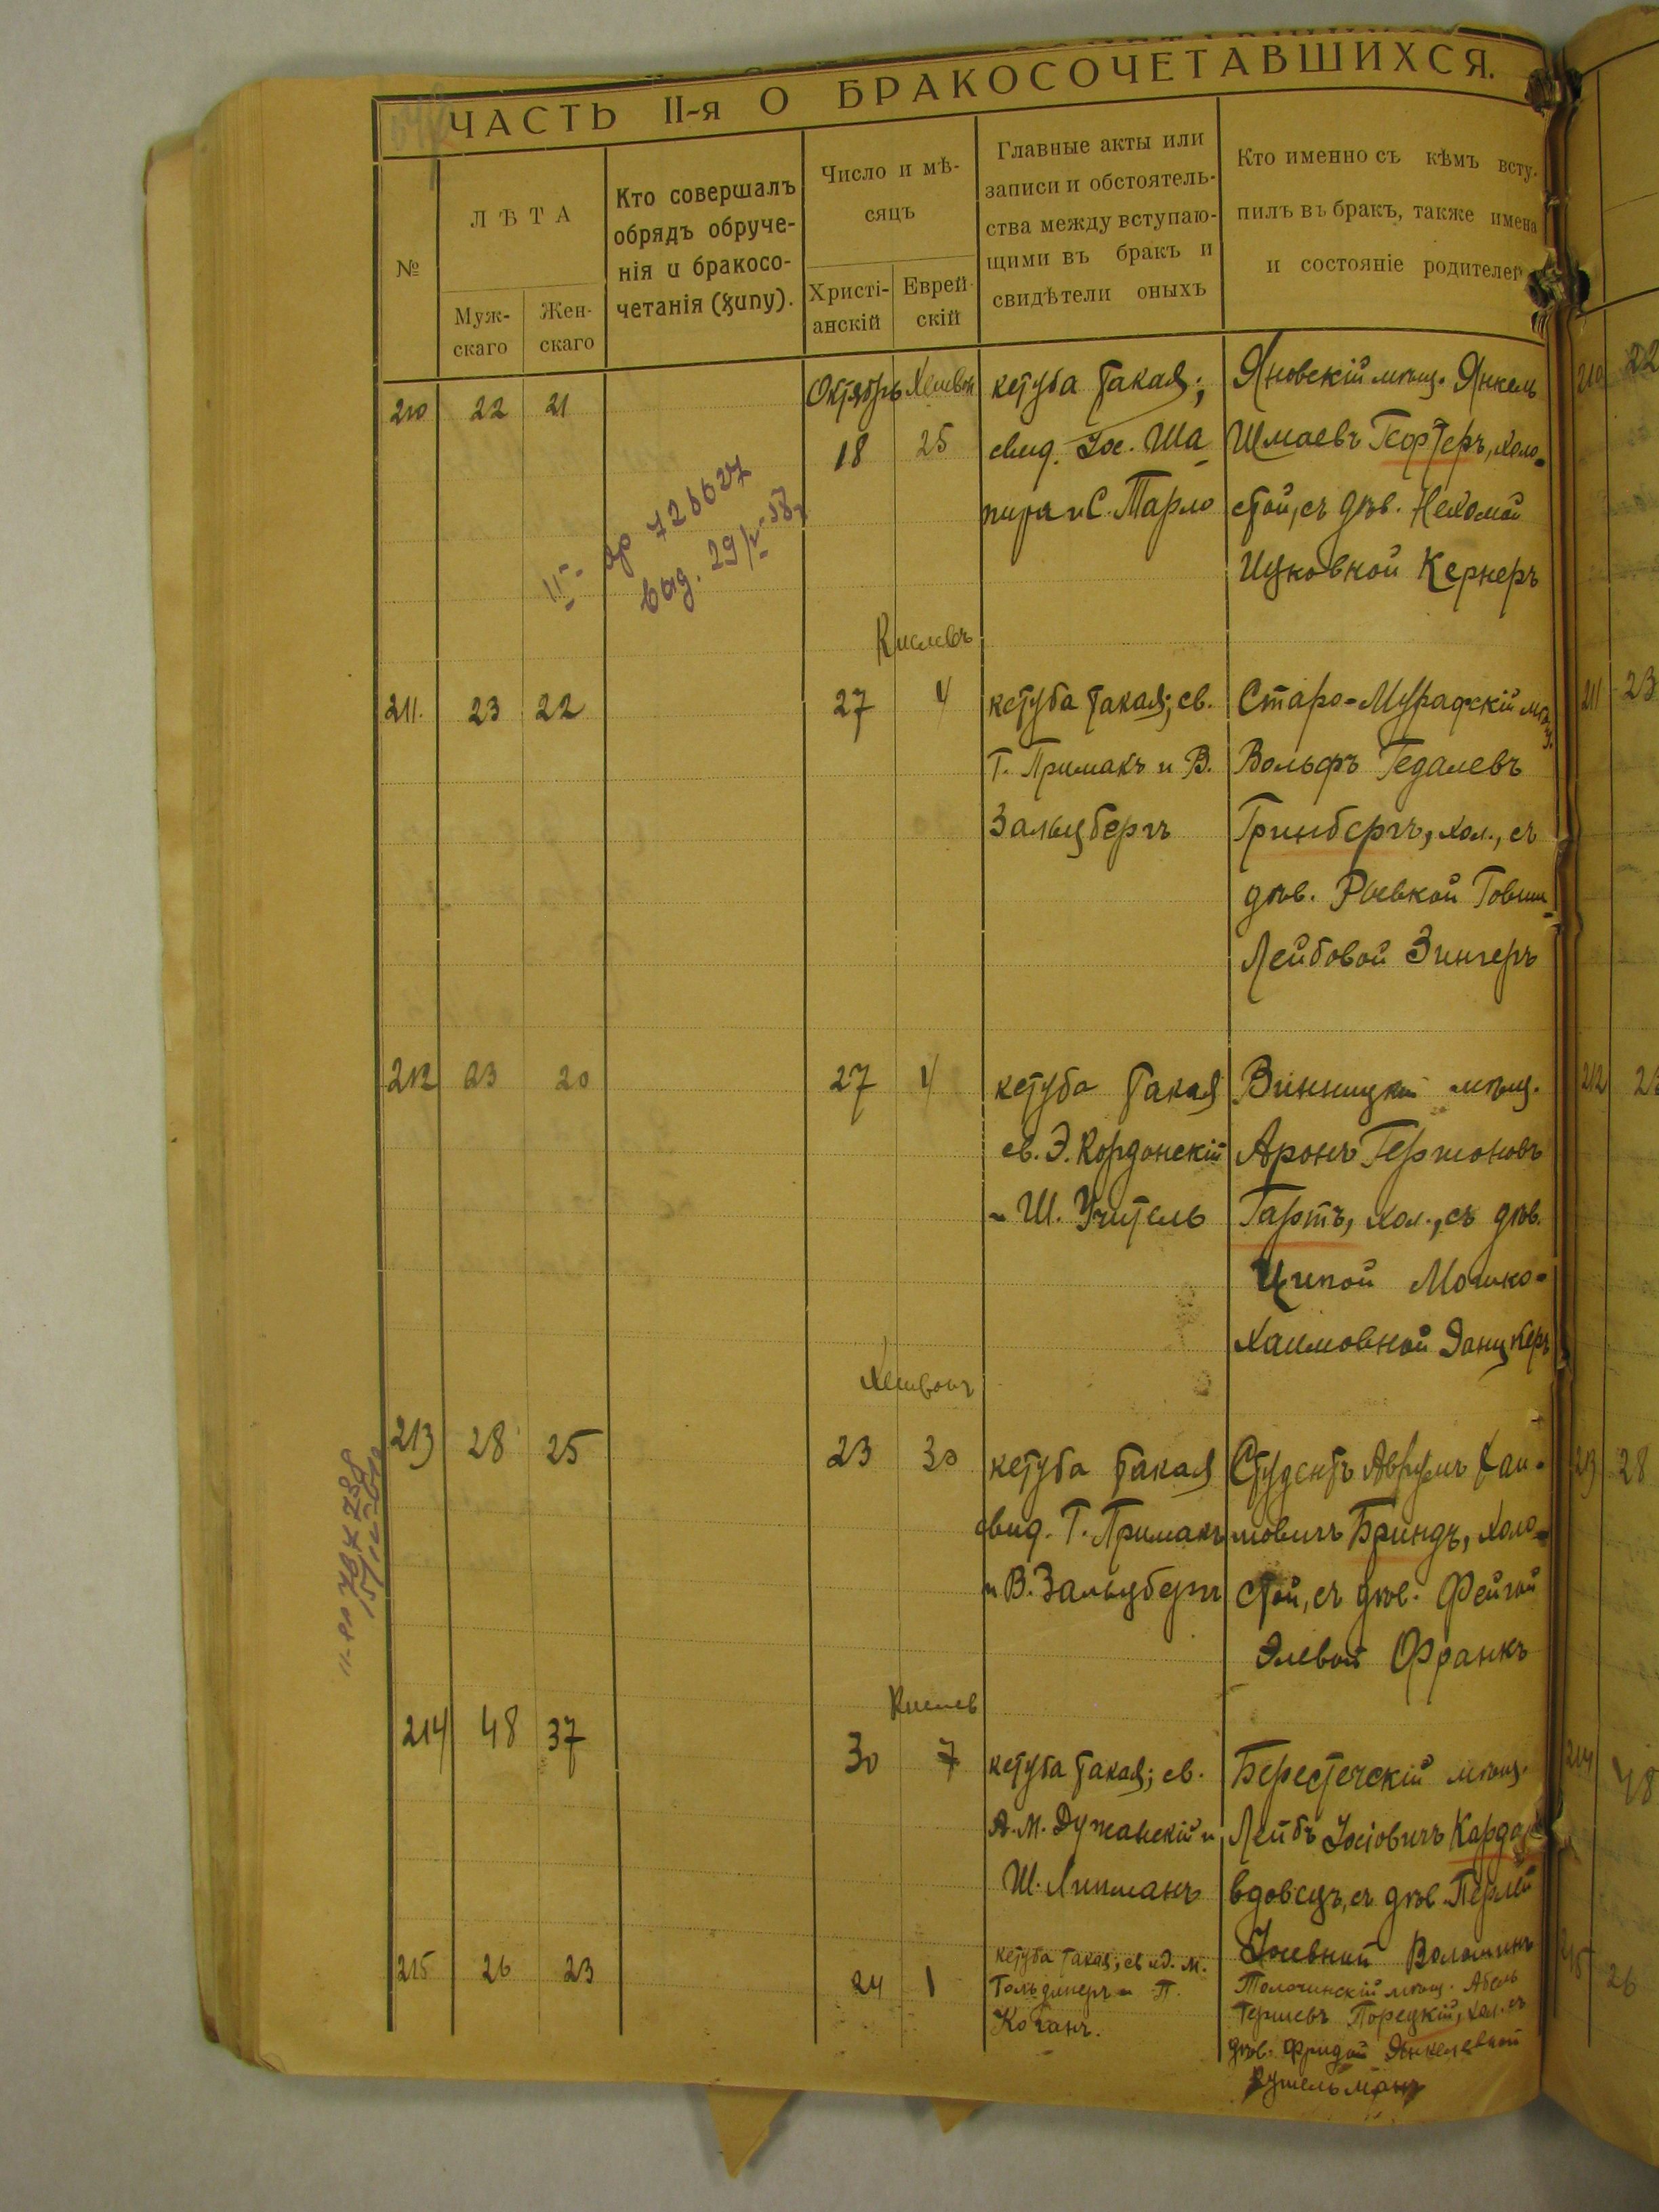 ЧАСТЬ II-я О БРАКОСОЧЕТАВШИХСЯ.
№
ЛѢТА
Муж-
скаго
Жен-
скаго
Кто совершалъ
обрядъ обруче-
нія и бракосо-
четанія (хупу).
Число и мѣ-
сяцъ
Христі-
анскій
Еврей-
скій
Главные акты или
записи и обстоятель-
ства между вступаю-
щими въ бракъ и
свидѣтели оныхъ
Кто именно съ кѣмъ всту-
пилъ въ бракъ, также имена
и состояніе родителей
210 22 21
Октябрь Хешвон
18 25
кетуба такая;
свид. Іос. Ша-
пиря и С. Тарло
Яновскій мѣщ. Янкель
Шмаевъ Гефтеръ, холо-
стой, съ дѣв. Нехомой
Ицковной Кернеръ
II- 726627
выд. 29/V-58
Кислевъ
211. 23 22
27 4
кетуба такая; св.
Г. Примакъ и В.
Зальцбергъ
Старо-Мурафскій мѣщ.
Вольфъ Гедалевъ
Гринбергъ, хол., съ
дѣв. Ривкой Товии-
Лейбовой Зингеръ
212 23 20
27 4
кетуба такая
св. Э. Кордонскій
и Ш. Учитель
Винницкій мѣщ.
Аронъ Гершоновъ
Гартъ, хол., съ дѣв.
Ципой Мошко-
Хаимовной Данцкеръ
Хешвонъ
213 28 25
23 30
кетуба такая
свид. Г. Примакъ
и В. Зальцбергъ
Студентъ Аврумъ Хаи-
мовичъ Бриндъ, холо-
стой, съ дѣв. Фейгой
Элевой Франкъ
Кислев
214 48 37
30 7
кетуба такая; св.
А. М. Дужанскій и
Ш. Липманъ
Берестечскій мѣщ.
Лейбъ Іосіовичъ
вдовецъ, съ дѣв. Перлей
Волошинъ
215 26 23
24 1
кетуба такая; св.
Гольдингеръ и П.
Коганъ.
Толочинскій мѣщ. Абель
Гершевъ Порецкій, хол. съ
дѣв. Фридой Янкелевной
210 22
211 23
212
213 28
214 48
26